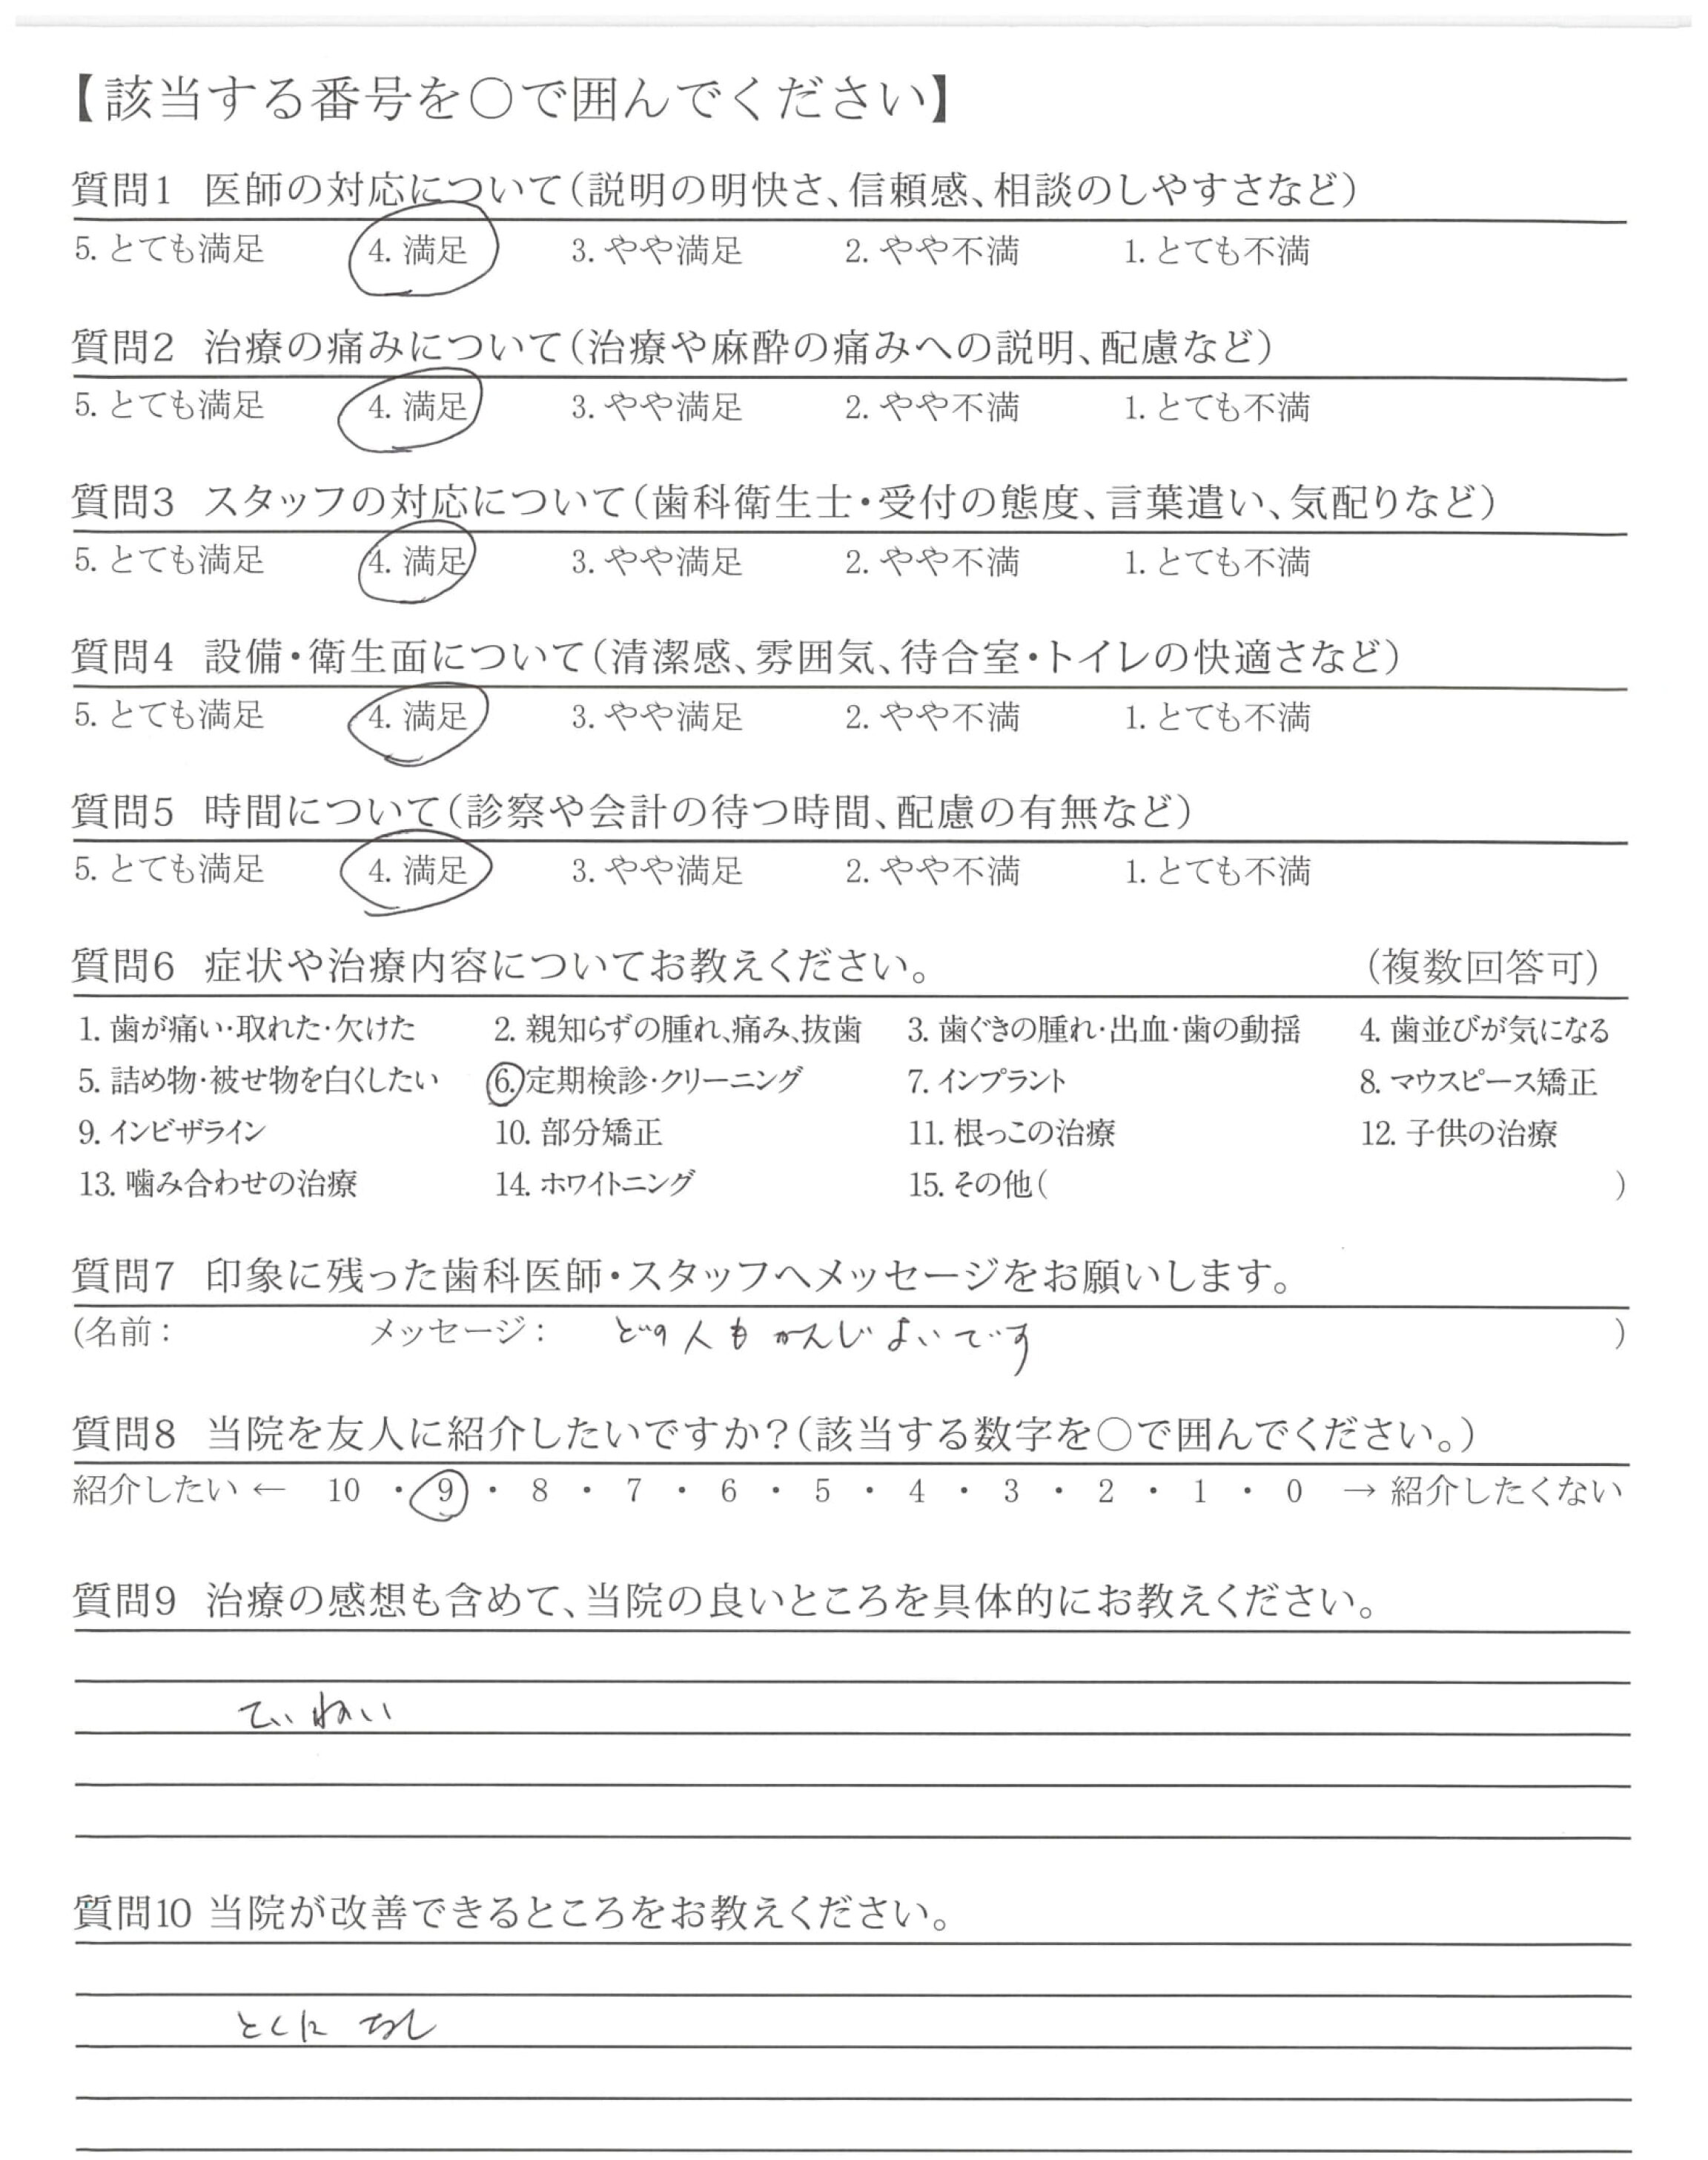 【該当する番号を○で囲んでください】
質問1 医師の対応について(説明の明快さ、信頼感、相談のしやすさなど)
5. とても満足 4. 満足 3. やや満足 2. やや不満 1. とても不満
質問2 治療の痛みについて(治療や麻酔の痛みへの説明、配慮など)
5. とても満足 4. 満足 3. やや満足 2. やや不満 1. とても不満
質問3 スタッフの対応について(歯科衛生士・受付の態度、言葉遣い、気配りなど)
5. とても満足 4. 満足 3. やや満足 2. やや不満 1. とても不満
質問4 設備・衛生面について(清潔感、雰囲気、待合室・トイレの快適さなど)
5. とても満足 4. 満足 3. やや満足 2. やや不満 1. とても不満
質問5 時間について(診察や会計の待つ時間、配慮の有無など)
5. とても満足 4. 満足 3. やや満足 2. やや不満 1. とても不満
質問6 症状や治療内容についてお教えください。 (複数回答可)
1. 歯が痛い・取れた・欠けた 2. 親知らずの腫れ、痛み、抜歯 3. 歯ぐきの腫れ・出血・歯の動揺 4. 歯並びが気になる
5. 詰め物・被せ物を白くしたい 6. 定期検診・クリーニング 7. インプラント 8. マウスピース矯正
9. インビザライン 10. 部分矯正 11. 根っこの治療 12. 子供の治療
13. 噛み合わせの治療 14. ホワイトニング 15. その他( )
質問7 印象に残った歯科医師・スタッフへメッセージをお願いします。
(名前: メッセージ: どの人もかんじよいです )
質問8 当院を友人に紹介したいですか?(該当する数字を○で囲んでください。)
紹介したい ← 10 ・ 9 ・ 8 ・ 7 ・ 6 ・ 5 ・ 4 ・ 3 ・ 2 ・ 1 ・ 0 → 紹介したくない
質問9 治療の感想も含めて、当院の良いところを具体的にお教えください。
ていねい
質問10 当院が改善できるところをお教えください。
とくに なし